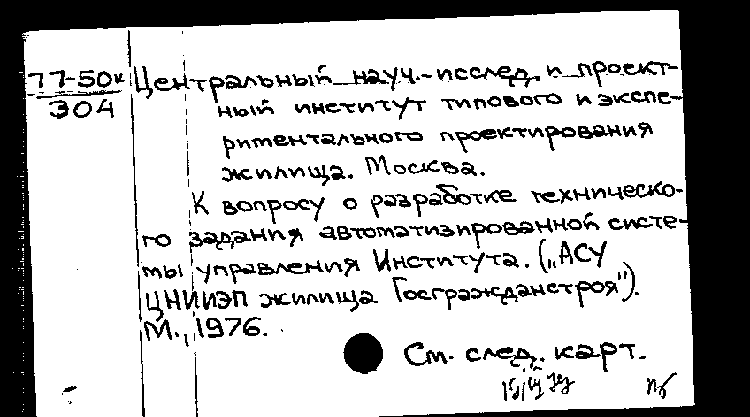 77-50к Центральный науч.-исслед. и проект-
304 ный институт типового и экспе-
риментального проектирования
жилища. Москва.
К вопросу о разработке техническо-
го задания автоматизированной систе-
мы управления Института. („АСУ
ЦНИИЭП жилища Госгражданстроя").
М., 1976.
См. след. карт.